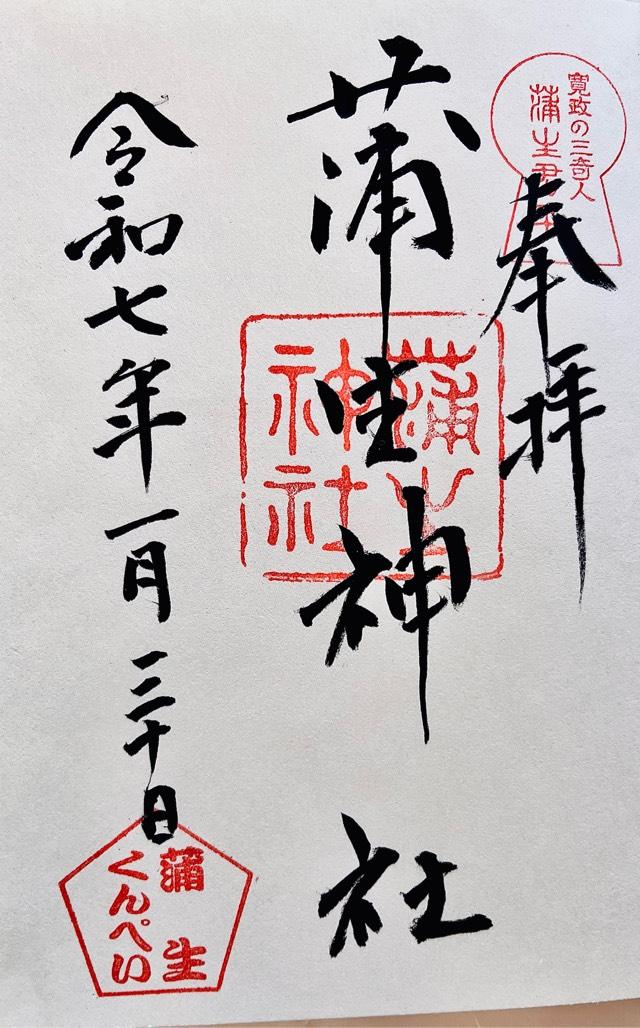 奉拝
寛政の三奇人
蒲生君平
蒲生神社
蒲生
神社
令和七年一月三十日
蒲生
くんぺい